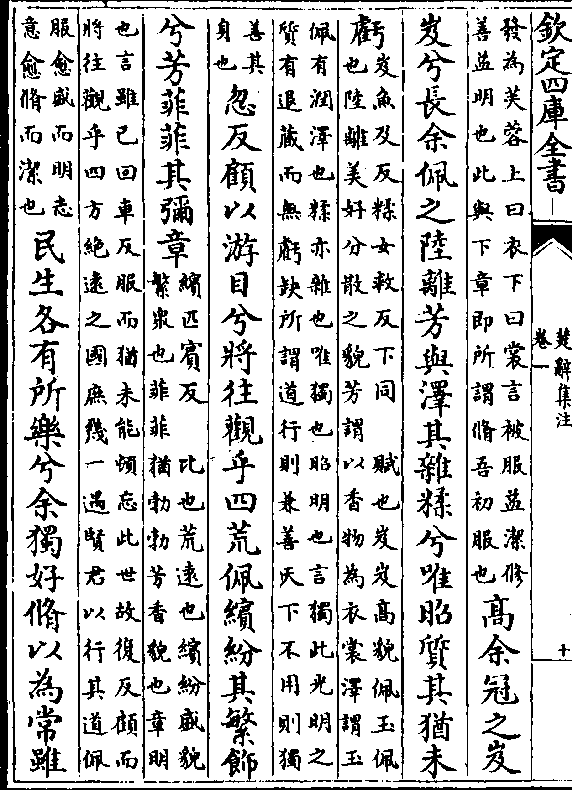 欽定四庫全書
楚辭集注
卷一
十
發為芙蓉上曰衣下曰裳言被服益潔修
善益明也此與下章即所謂脩吾初服也
髙余冠之岌
岌兮長余佩之陸離芳與澤其雜糅兮唯昭質其猶未
虧
岌魚及反糅女救反下同 賦也岌岌髙貌佩玉佩
也陸離美好分散之貌芳謂以香物為衣裳澤謂玉
佩有潤澤也糅亦雜也唯獨也昭明也言獨此光明之
質有退藏而無虧缺所謂道行則兼善天下不用則獨
善其
身也
忽反顧以游目兮將往觀乎四荒佩繽紛其繁飾
兮芳菲菲其彌章
繽匹賓反 比也荒逺也繽紛盛貌
繁衆也菲菲猶勃勃芳香貌也章明
也言雖已回車反服而猶未能頓忘此世故復反顧而
將往觀乎四方絶逺之國庶幾一遇賢君以行其道佩
服愈盛而明志
意愈脩而潔也
民生各有所樂兮余獨好脩以為常雖